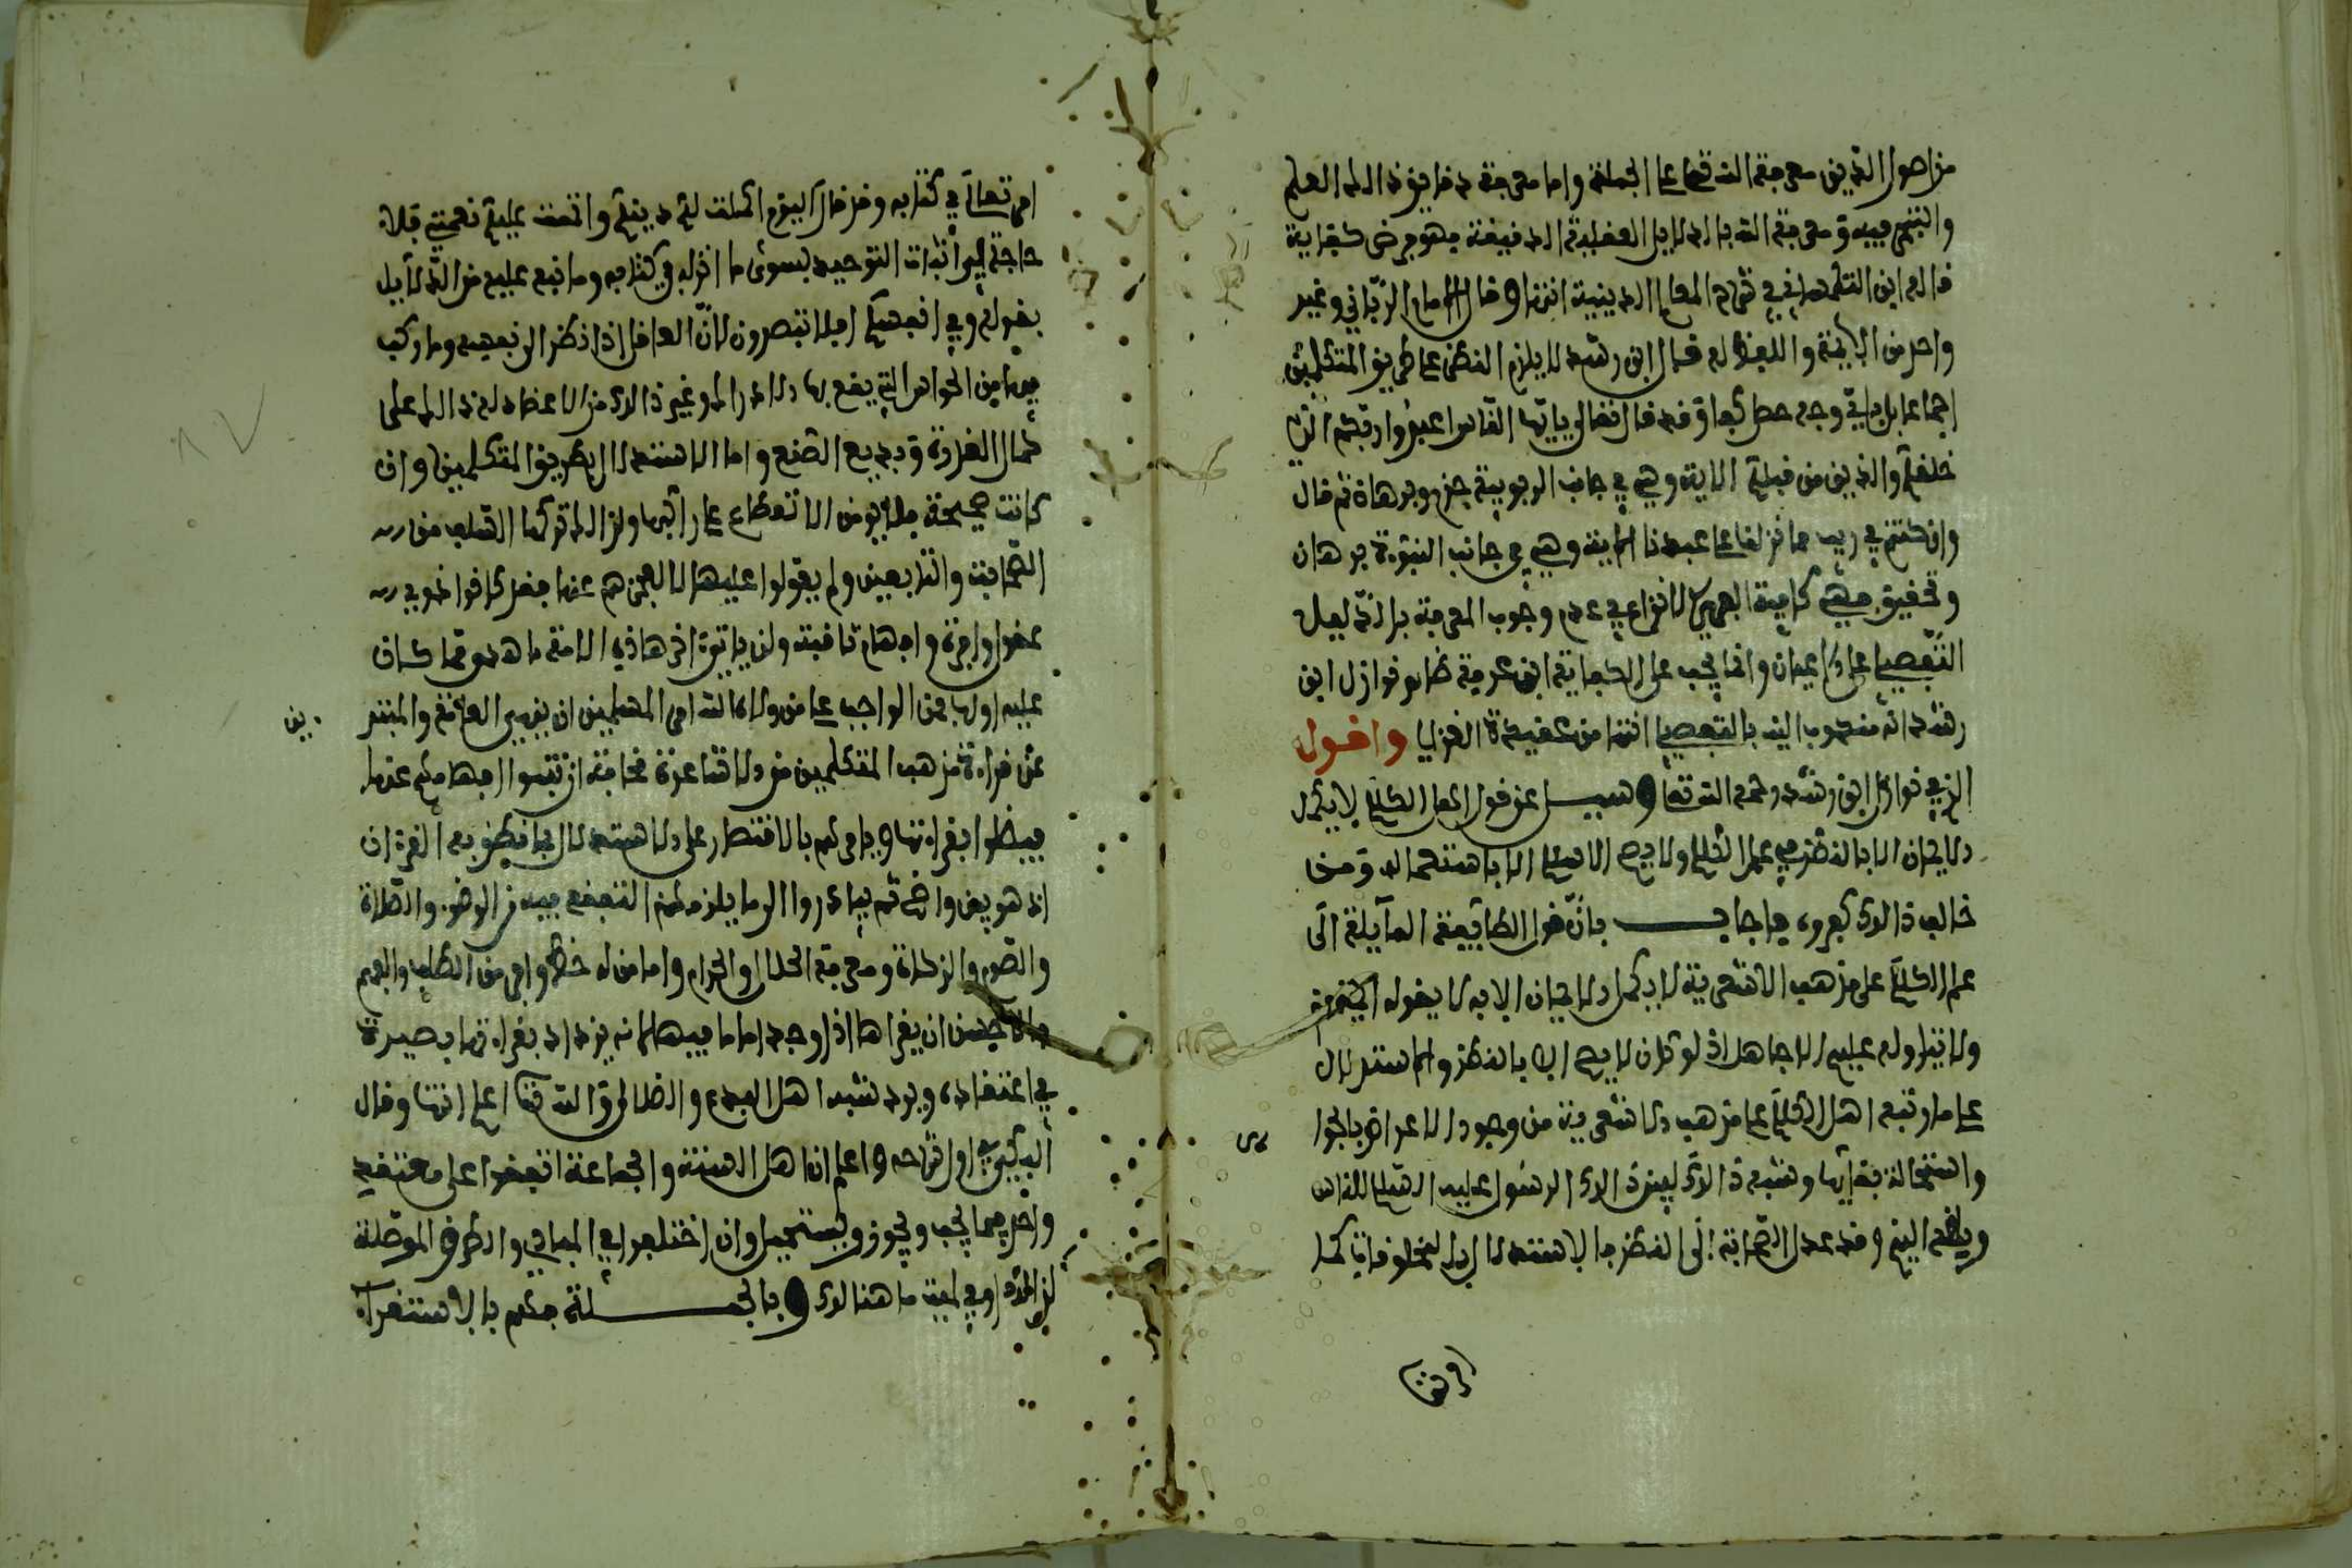 من اصول الدين معرفة الله تعالى على الجملة واما معرفة دقايق ذالك العلم
والتبحر فيه ومعرفة الله بالدلايل العقلية الدقيقة فهو فرض كفاية
قاله ابن التلمساني في شرح المعالم الدينية انتهى وقال الامام الزياتي وغير
واحد من الايمة واللفظ له قال ابن رشد لا يلزم النظر على طريق المتكلمين
اجماعا بل باي وجه حصل كفا وقد قال تعالى يايها الناس اعبدوا ربكم الذي
خلقكم والذين من قبلكم الاية وهي في جانب الربوبية جزم وبرهان ثم قال
وان كنتم في ريب مما نزلنا على عبدنا الاية وهي في جانب النبوة برهان
وتحقيق فهي كافية النزاع في عدم وجوب المعرفة بالدليل
التفصيلي على الاعيان وانما يجب على الكفاية ابن عرفة ظاهر نوازل ابن
رشد انه مندوب اليه بالتفصيل انتهى من عقيدة الغزالي واقول
الذي في نوازل ابن رشد رحمه الله تعالى وسيل عن قول اهل الكلام لا يكمل
الايمان الا بالنظر في علم الكلام ولا يصح الاسلام الا باستعماله ومن
خالف ذالك كفروه فاجاب بان قول الطايفة المايلة الى
علم الكلام على مذهب الاشعرية لا يكمل الايمان الا به لا يقوله احد منهم
ولا يتاوله عليهم الا جاهل اذ لو كان لا يصح الا بالنظر والاستدلال
على ما رتبه اهل الكلام على مذهب الاشعرية من وجود الاعراض بالجوا
هر
واستحالة بقايها وشبه ذالك لبين ذالك الرسول عليه السلام للناس
وبلغه اليهم وقد عدل الصحابة الى النظر بالاستدلال بالمخلوقات كما
امر تع
امر تعالى في كتابه وقد قال اليوم اكملت لكم دينكم واتممت عليكم نعمتي فلا
حاجة الى اثبات التوحيد بسوى ما انزله في كتابه وما نبه عليه من الدلايل
بقوله وفي انفسكم افلا تبصرون لان العاقل اذا نظر الى نفسه وما ركب
فيها من الحواس التي يقع بها الادراك وغير ذالك من الاعضاء له ذالك على
كمال القدرة وبديع الصنع واما الاستدلال بطريق المتكلمين وان
كانت صحيحة فلا يومن الانقطاع على راكبها ولذالك تركها السلف من
الصحابة والتابعين ولم يعولوا عليها لا لعجزهم عنها فقد كانوا ذوي
عقول وافرة وافهام ثاقبة ولن ياتي اخر هاذه الامة باهدى مما كان
عليه اولها فمن الواجب على من ولاه الله امر المسلمين ان ينهى العامة والمبتد
ين
عن قراءة مذهب المتكلمين من الاشاعرة مخافة ان تنبوا افهامهم عنها
فيضلوا بقراءتها ويامرهم بالاقتصار على الاستدلال بما نطق به القرءان
اذ هو بين واضح ثم يبادروا الى ما يلزمهم التفقه فيه من الوضوء والصلاة
والصوم والزكاة ومعرفة الحلال والحرام واما من له حظ وافر من الطلب والفهم
فالاحسن ان يقراها اذا وجد اماما فيها لانه يزداد بقراءتها بصيرة
في اعتقاده ويرد شبه اهل البدع والضلال والله تعالى اعلم انتهى وقال
البكي في اول شرحه واعلم ان اهل السنة والجماعة اتفقوا على معتقد
واحد فيما يجب ويجوز ويستحيل وان اختلفوا في المبادي والطرق الموصلة
لذالك او في لمية ما هنالك وبالجملة فهم بالاستقراء